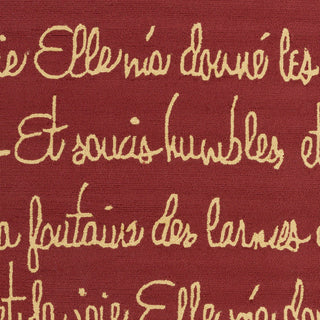 ie Elle m'a donné les
Et soucis humbles, et
a fontaine des larmes
et la joie Elle m'a do